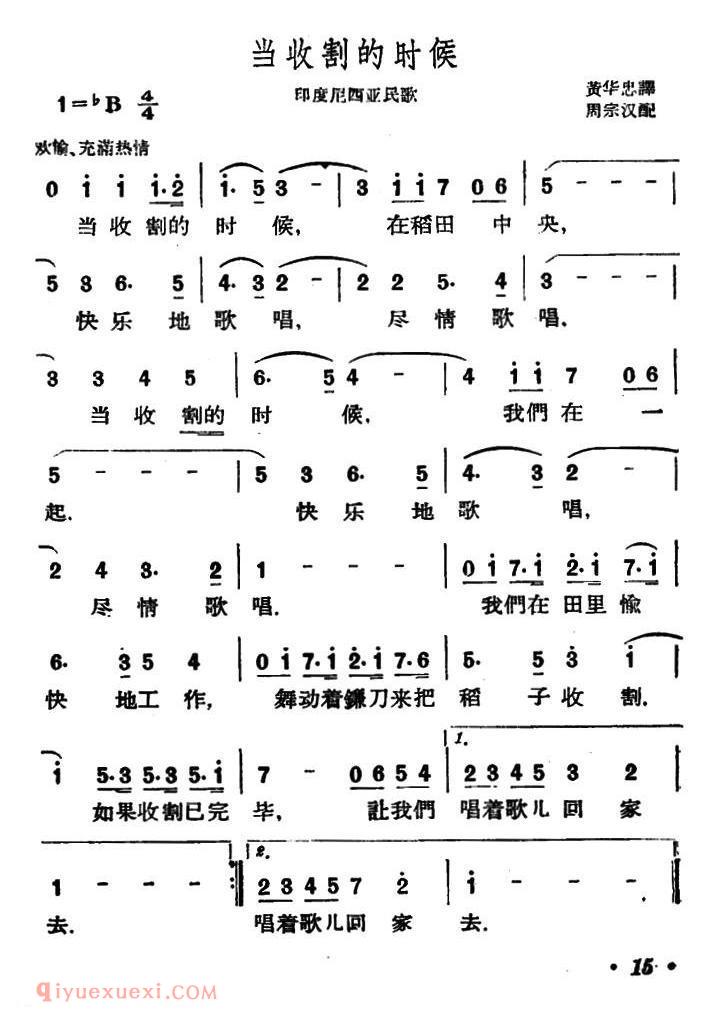 当收割的时候
1=♭B 4/4
印度尼西亚民歌
黄华忠譯
周宗汉配
欢愉、充滿热情
0 i i i·2 | i· 5 3 - | 3 i i 7 0 6 | 5 - - -
当收割的时候，在稻田中央，
5 3 6· 5 | 4· 3 2 - | 2 2 5· 4 | 3 - - -
快乐地歌唱，尽情歌唱．
3 3 4 5 | 6· 5 4 - | 4 i i 7 0 6
当收割的时候，我們在一
5 - - - | 5 3 6· 5 | 4· 3 2 -
起．快乐地歌唱，
2 4 3· 2 | 1 - - | 0 i 7·i 2·i 7·i
尽情歌唱．我們在田里愉
6· 3 5 4 | 0 i 7·i 2·i 7·6 | 5· 5 3 i
快地工作，舞动着鐮刀来把稻子收割．
i 5·3 5·3 5·i | 7 - 0 6 5 4 | 1. 2 3 4 5 3 2
如果收割已完毕，訨我們唱着歌儿回家
1 - - - :| 2. 2 3 4 5 7 2 | i - - -
去．唱着歌儿回家去．
• 15 •
qiyuexuexi.com